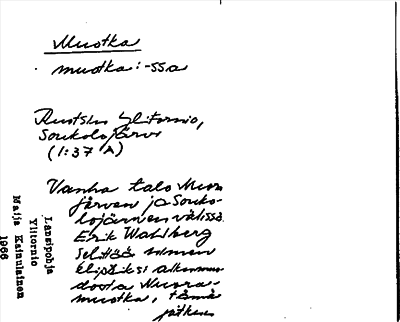 Muotka
muotka: -ssa
Ruotsin Ylitornio,
Soukolojärvi
(1:37 A)
Vanha talo Muon
järven ja Souko-
lojärven välissä.
Erik Wahlberg
selittää nimen
ellipsiksi
muotka, tämä
jatkuu
Länsipohja
Ylitornio
Maija Kainulainen
1966